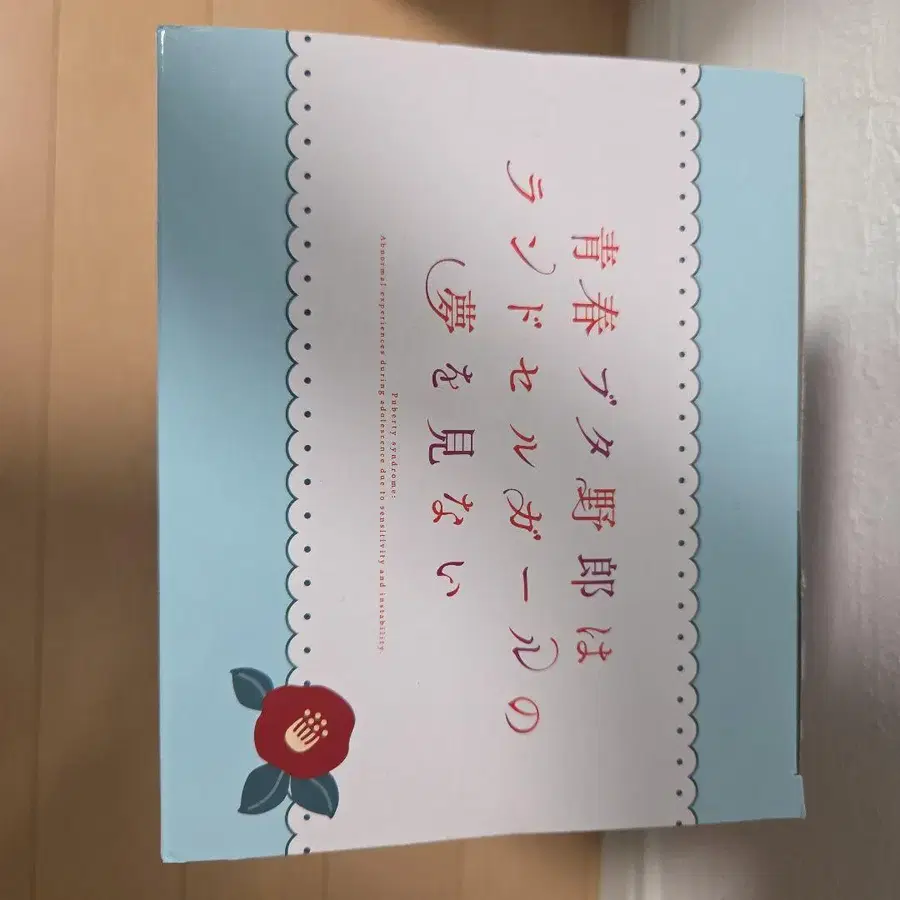 青春ブタ野郎は
ランドセルガールの
夢を見ない
Puberty syndrome:
Abnormal experiences during adolescence due to sensitivity and instability.